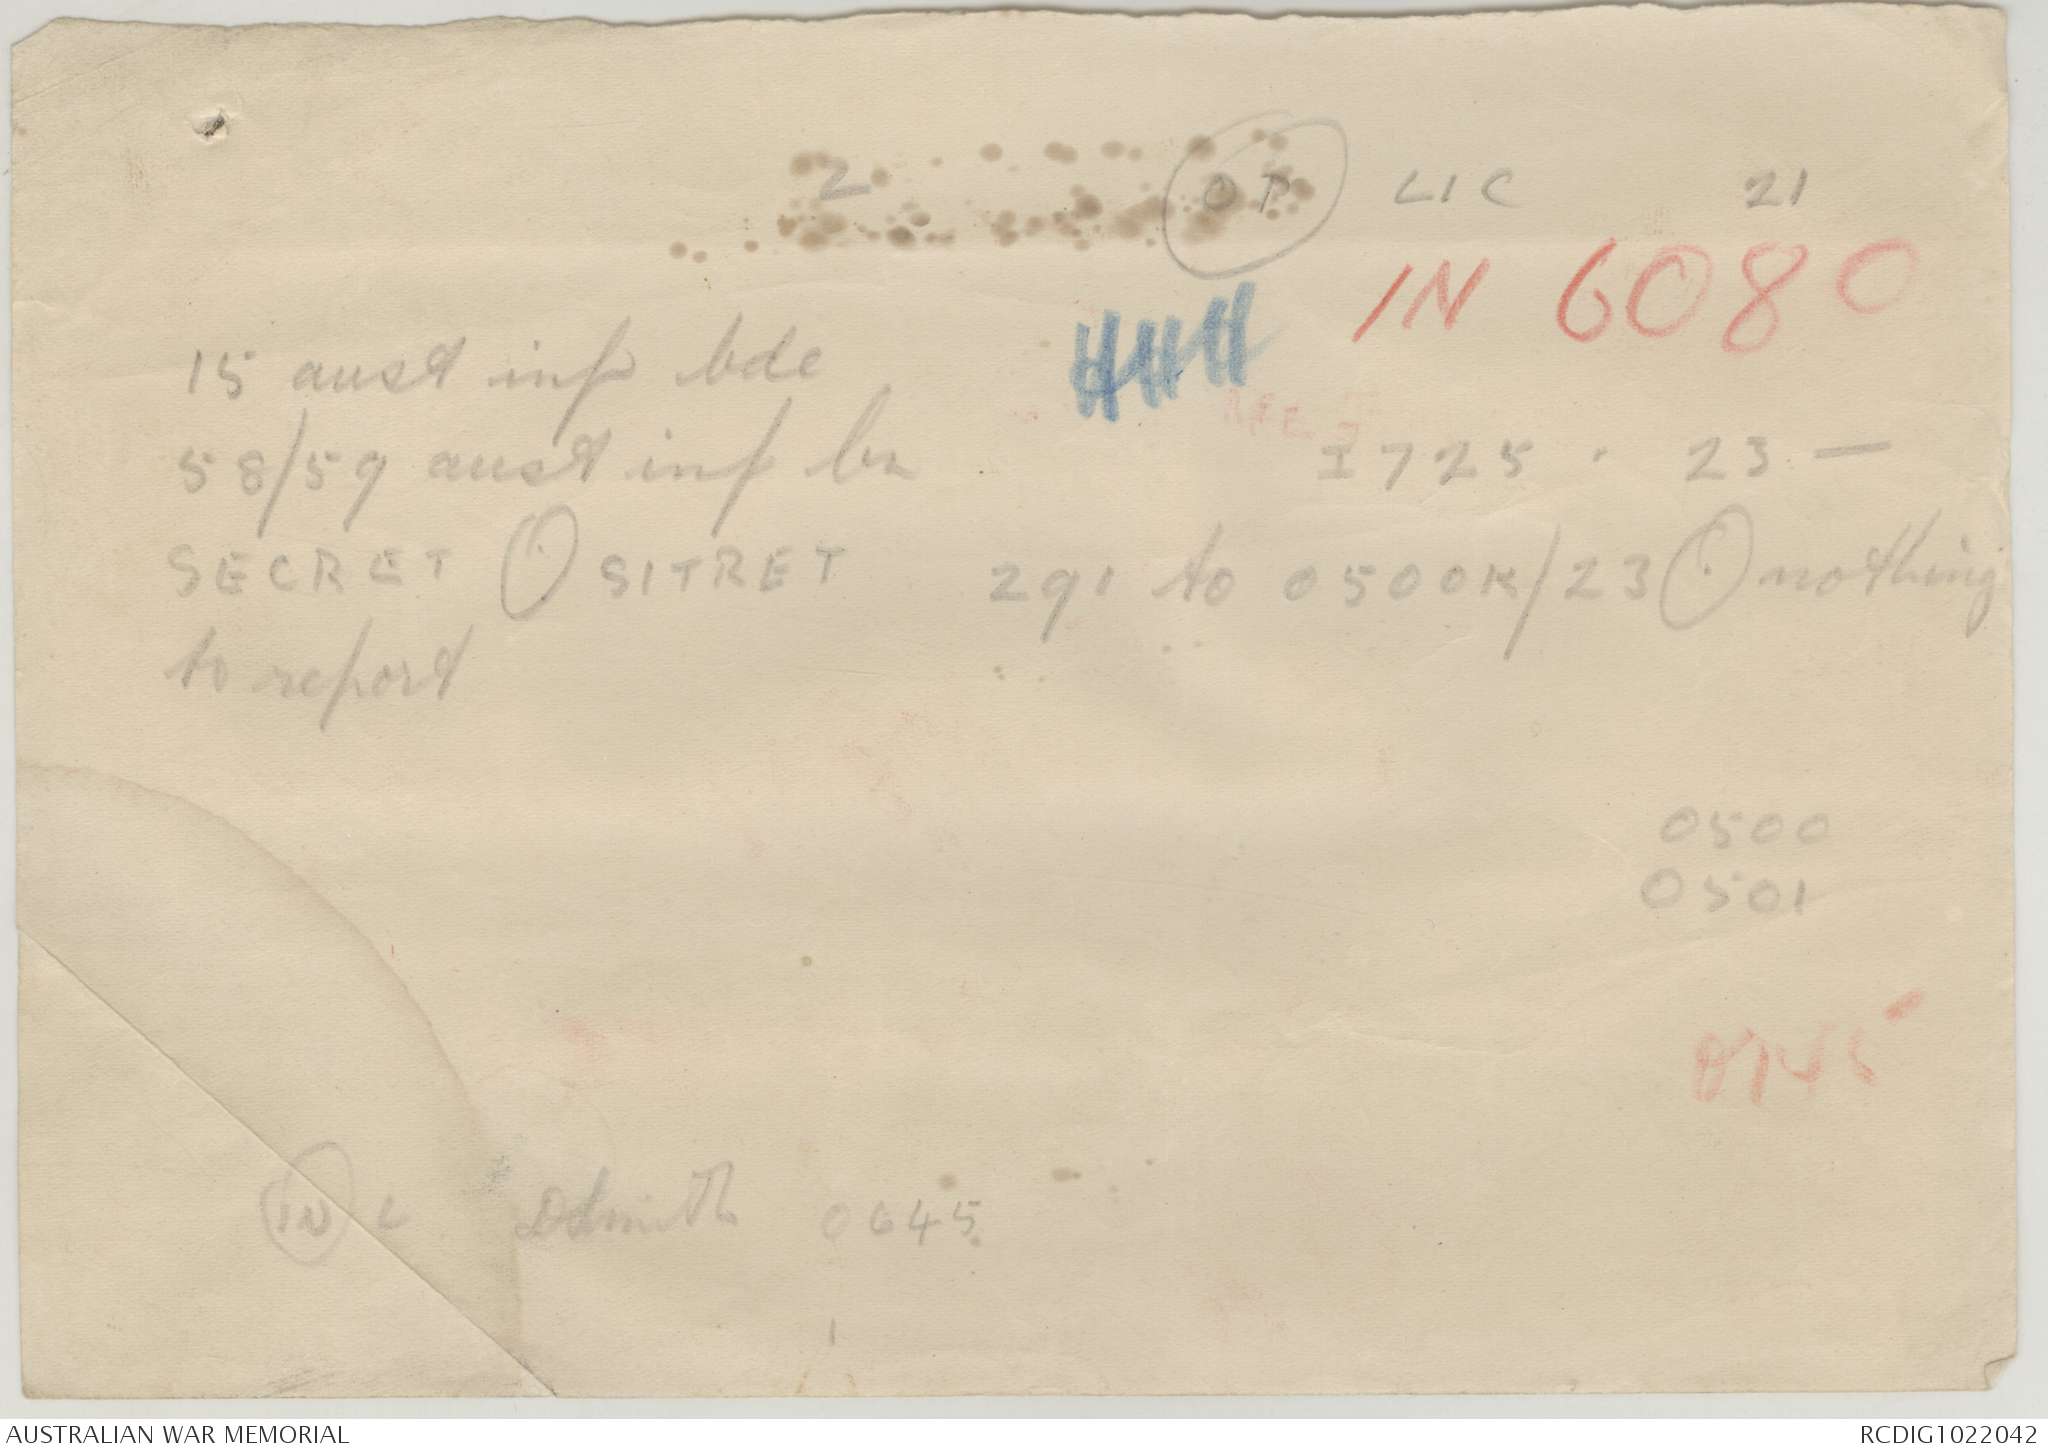 2 OP LIC 21
IN 6080
15 aust inf bde
58/59 aust inf bn I725 . 23 —
SECRET (.) SITRET 291 to 0500K/23 (.) nothing
to report
0500
0501
0745
IN L DSmith 0645
AUSTRALIAN WAR MEMORIAL RCDIG1022042